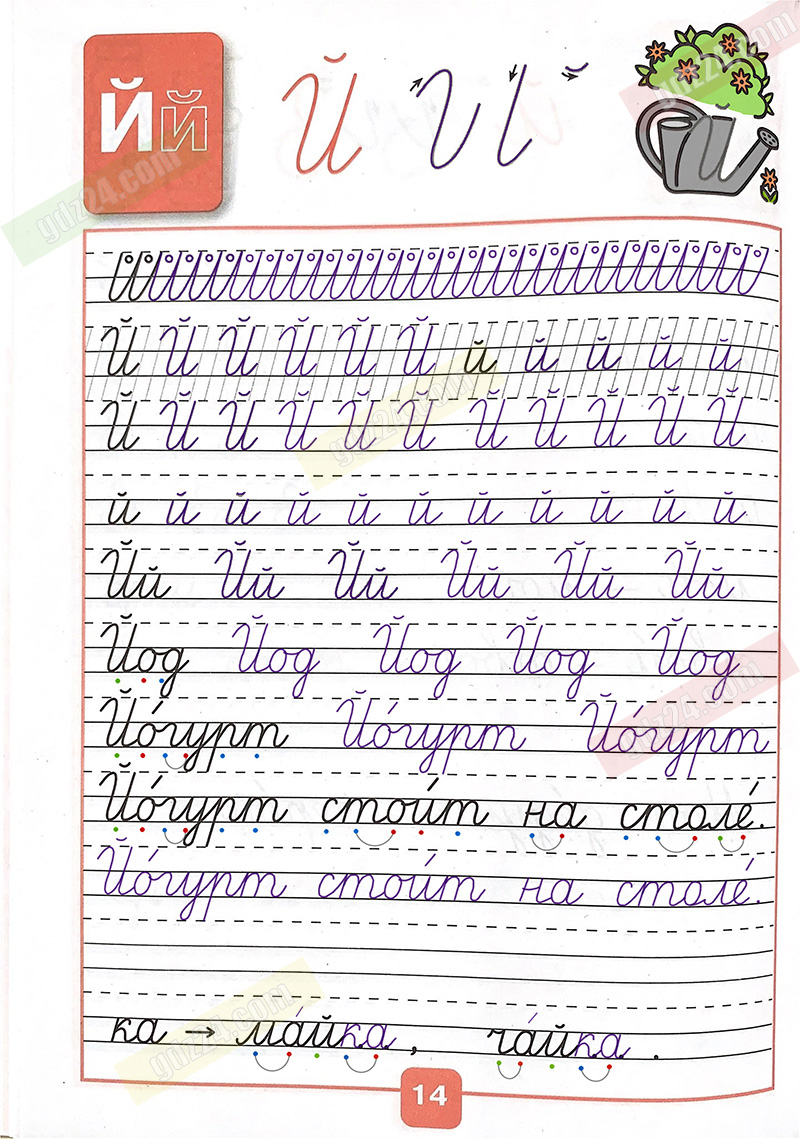 Йй Й
Й Й Й Й Й Й й й й й й
Й Й Й Й Й Й Й Й Й Й Й
й й й й й й й й й й й
Йй Йй Йй Йй Йй Йй
Йод Йод Йод Йод Йод
Йо́гурт Йо́гурт Йо́гурт
Йо́гурт стои́т на столе́.
Йо́гурт стои́т на столе́.
ка → ма́йка, ча́йка.
14
gdz24.com
gdz24.com
gdz24.com
gdz24.com
gdz24.com